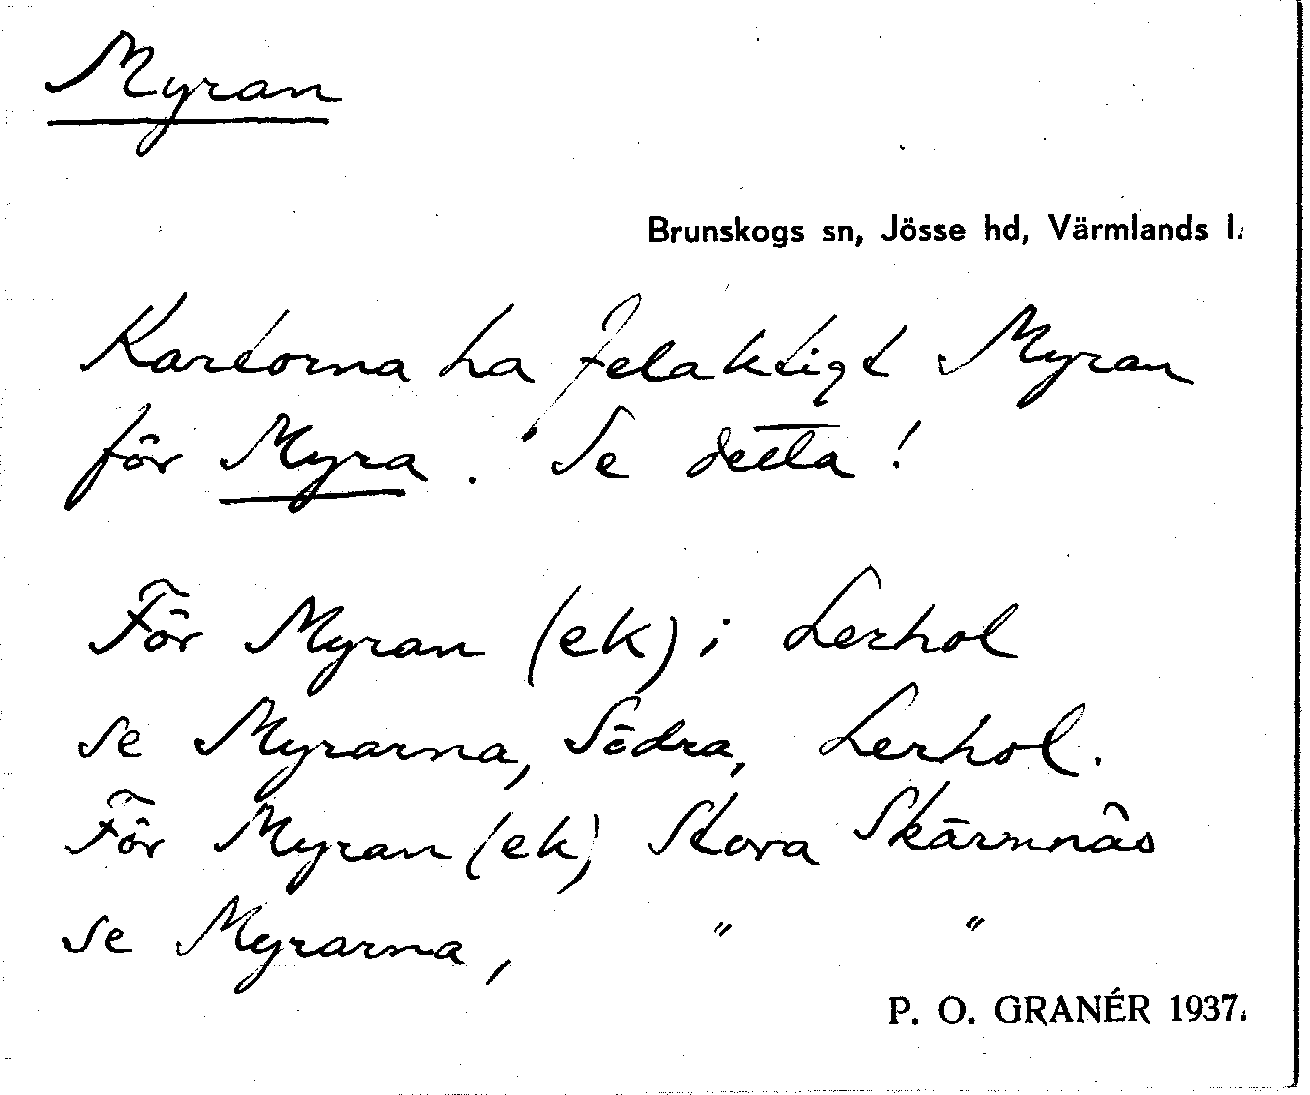 Myran
Brunskogs sn, Jösse hd, Värmlands l.
Kartorna ha felaktigt Myran
för Myra. Se detta!
För Myran (ek) i Lerhol
se Myrarna, Södra, Lerhol.
För Myran (ek) Stora Skärmnäs
se Myrarna, " "
P. O. GRANÉR 1937.